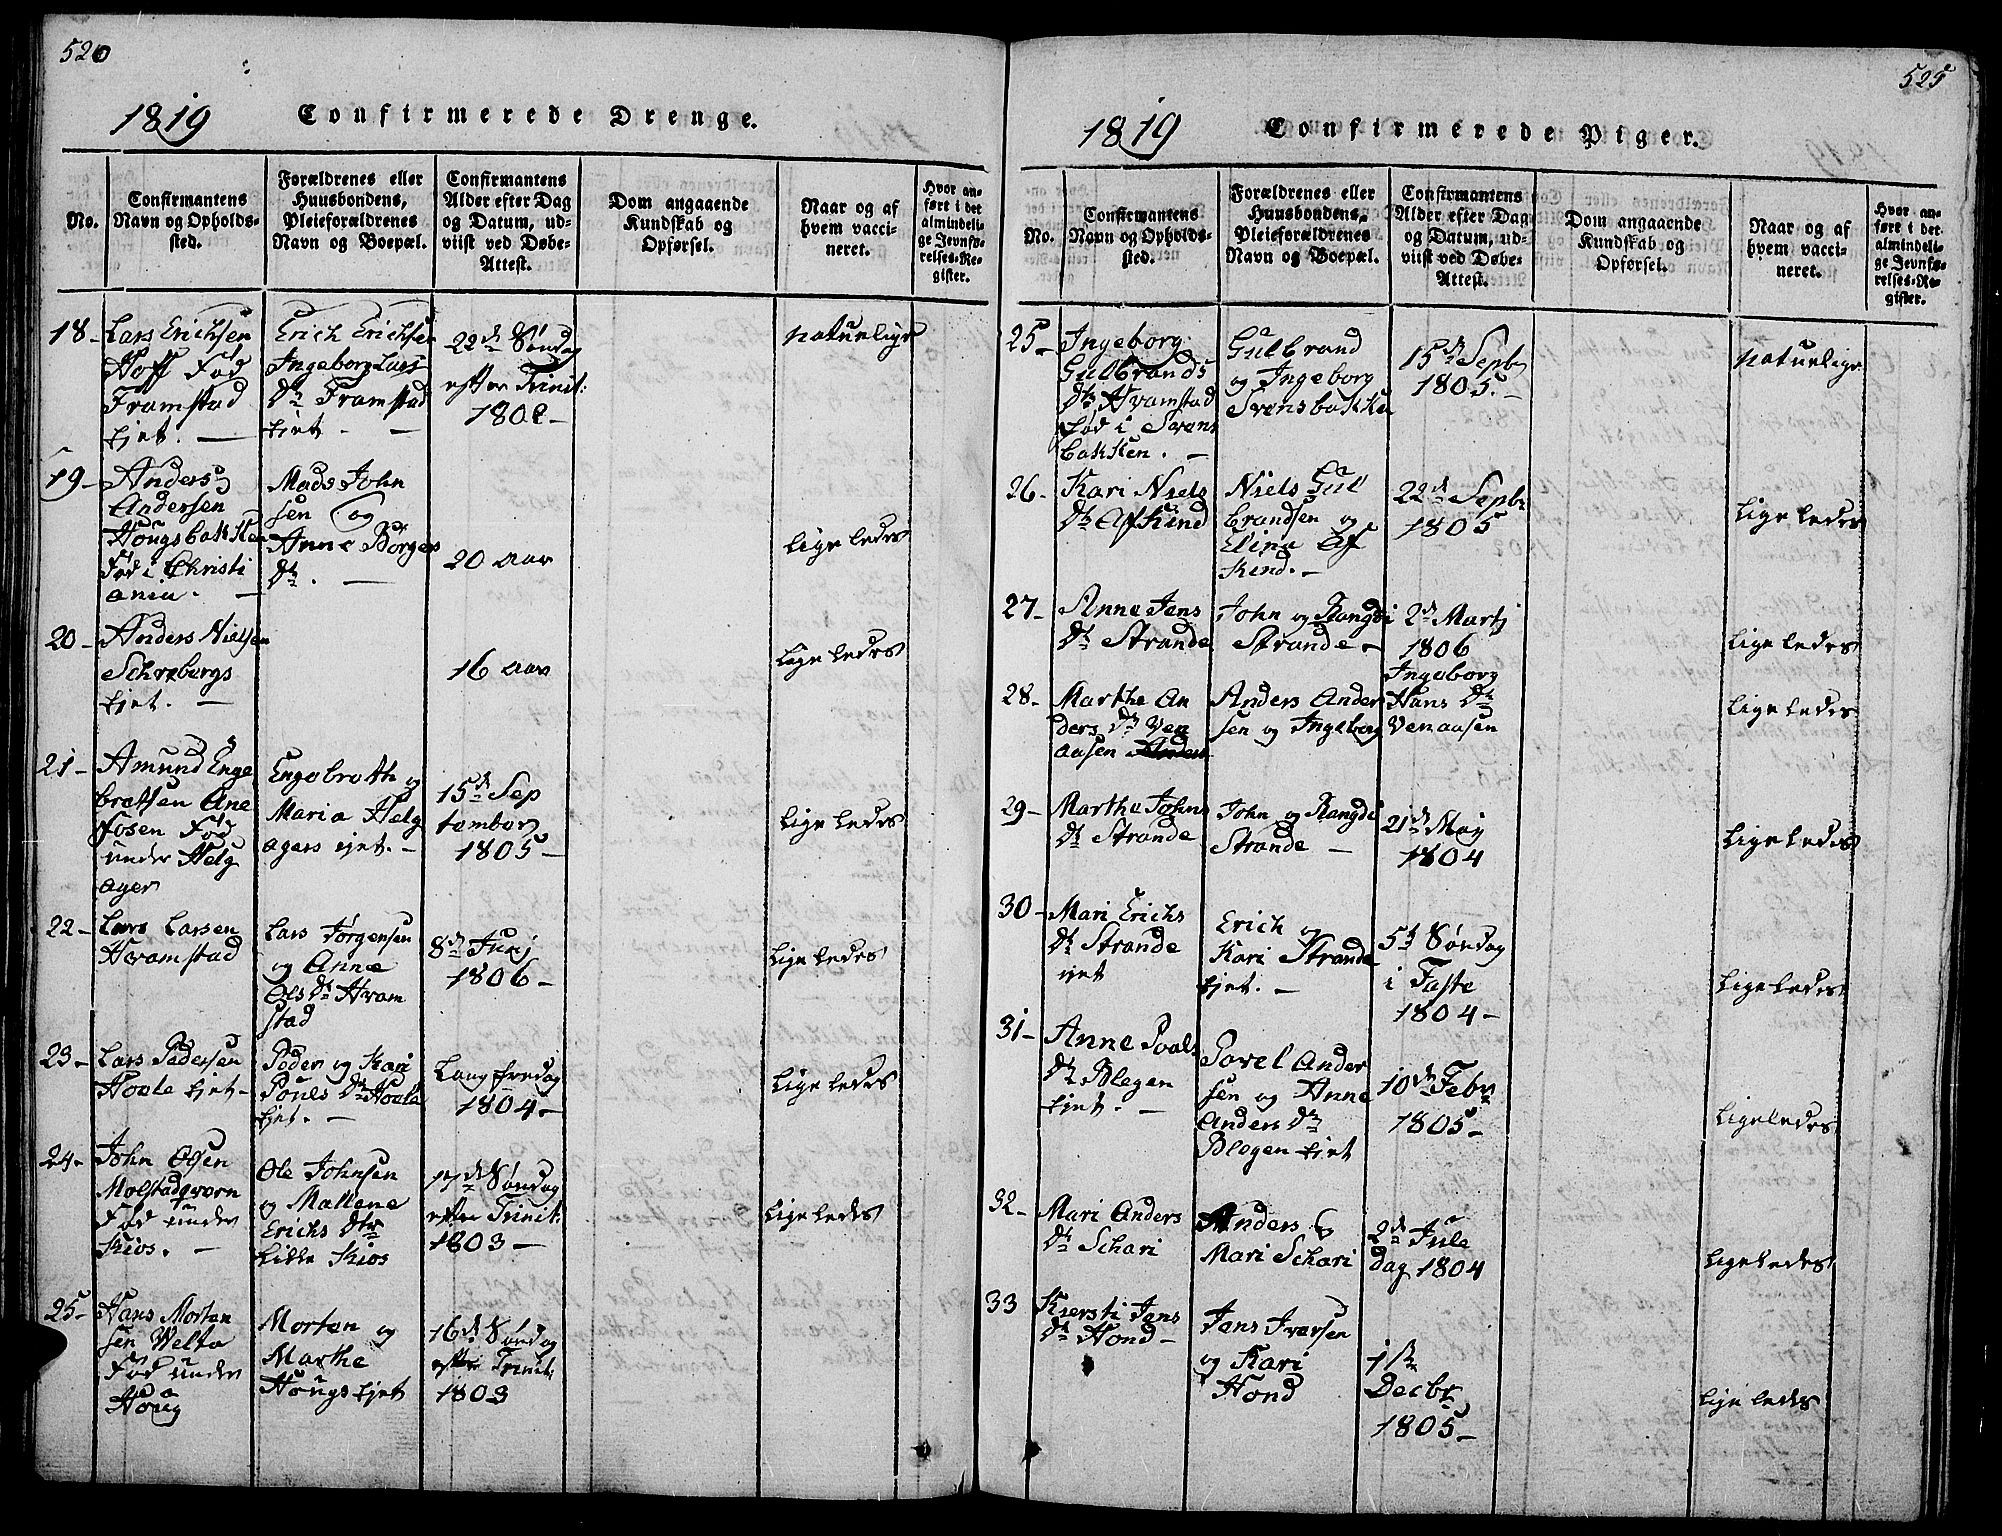 520
1819 Confirmerede Drenge.
No.
Confirmantens Navn og Opholds-sted.
Forældrenes eller Huusbondens, Pleieforældrenes Navn og Boepæl.
Confirmantens Alder efter Dag og Datum, ud-viist ved Døbe-Attest.
Dom angaaende Kundskab og Opførsel.
Naar og af hvem vacci-neret.
Hvor an-ført i det almindeli-ge Jevnfø-relses-Re-gister.
18-
Lars Erichsen
Hoff Fød
Framstad
Ejet. —
Erich Erichse
Ingeborg Lars
Dtr Framstad
Ejet. —
22de Søndag
efter Trinit:
1802-
naturlige
19-
Anders
Andersen
Hougsbakken
Fød i Christi
ania. —
Mads John
sen og
Anne Börges
Dtr. —
20 aar
ligeledes
20-
Anders Nielsen
Schrebergs
Ejet. —
16 aar
ligeledes
21-
Amund Enge
bretsen Ane
fosen Fød
under Helg
ager
Engebreth og
Maria Helg
agers ejet. -
15de Sep
tember
1805-
ligeledes
22-
Lars Larsen
Hvamstad
Lars Jørgensen
og Anne
Ols Dtr Hvam
stad
8de Junj
1806-
ligeledes
23-
Lars Pedersen
Hoele Ejet-
Peder og Kari
Pouls Dtr Hoele
Ejet. —
Langfredag
1804-
ligeledes
24-
John Olsen
Molstadqvern
Fød under
Kios. —
Ole Johnsen
og Mallene
Erichs Dtr
Lille Kios
17de Søndag
efter Trinit:
1803-
ligeledes
25-
Hans Morten
sen Welta
Fød under
Houg
Morten og
Marthe
Hougs Ejet
16de Søndag
efter Trinit:
1803
525
1819 Confirmerede Piger.
No.
Confirmantens Navn og Opholds-sted.
Forældrenes eller Huusbondens, Pleieforældrenes Navn og Boepæl.
Confirmantens Alder efter Dag og Datum, ud-viist ved Døbe-Attest.
Dom angaaende Kundskab og Opførsel.
Naar og af hvem vacci-neret.
Hvor an-ført i det almindeli-ge Jevnfø-relses-Re-gister.
25-
Ingeborg
Gulbrands
Dtr Hvamstad
Fød i Svens
bakken. —
Gulbrand
og Ingeborg
Svensbakke
15de Sepb
1805. -
naturlige
26-
Kari Niels
Dtr Afkind
Niels Gul
brandsen og
Elina Af
kind. -
22de Sepbr
1805
ligeledes
27-
Anne Jens
Dtr Strande
John og Rangdi
Strande-
2de Martj
1806
ligeledes
28-
Marthe An
ders Dtr Ven
aasen
Anders Ander
sen og Ingeborg
Ingeborg
Hans Dtr
Venaasen
ligeledes
29-
Marthe Johns
Dtr Strande
John og Rangdi
Strande —
21de Maj
1804
ligeledes
30-
Mari Erichs
Dtr Strande
ejet
Erich og
Kari Strande
Ejet. —
5te Søndag
i Faste
1804-
ligeledes
31-
Anne Poals
Dtr Blegen
Ejet. —
Povel Ander
sen og Anne
Anders Dtr
Blegen Ejet
10de Febr
1805-
ligeledes
32-
Mari Anders
Dtr Schari
Anders og
Mari Schari
2de Jule
Dag 1804
ligeledes
33
Kiersti Jens
Dtr Hond-
Jens Iversen
og Kari
Hond
1ste
Decbr
1805-
ligeledes